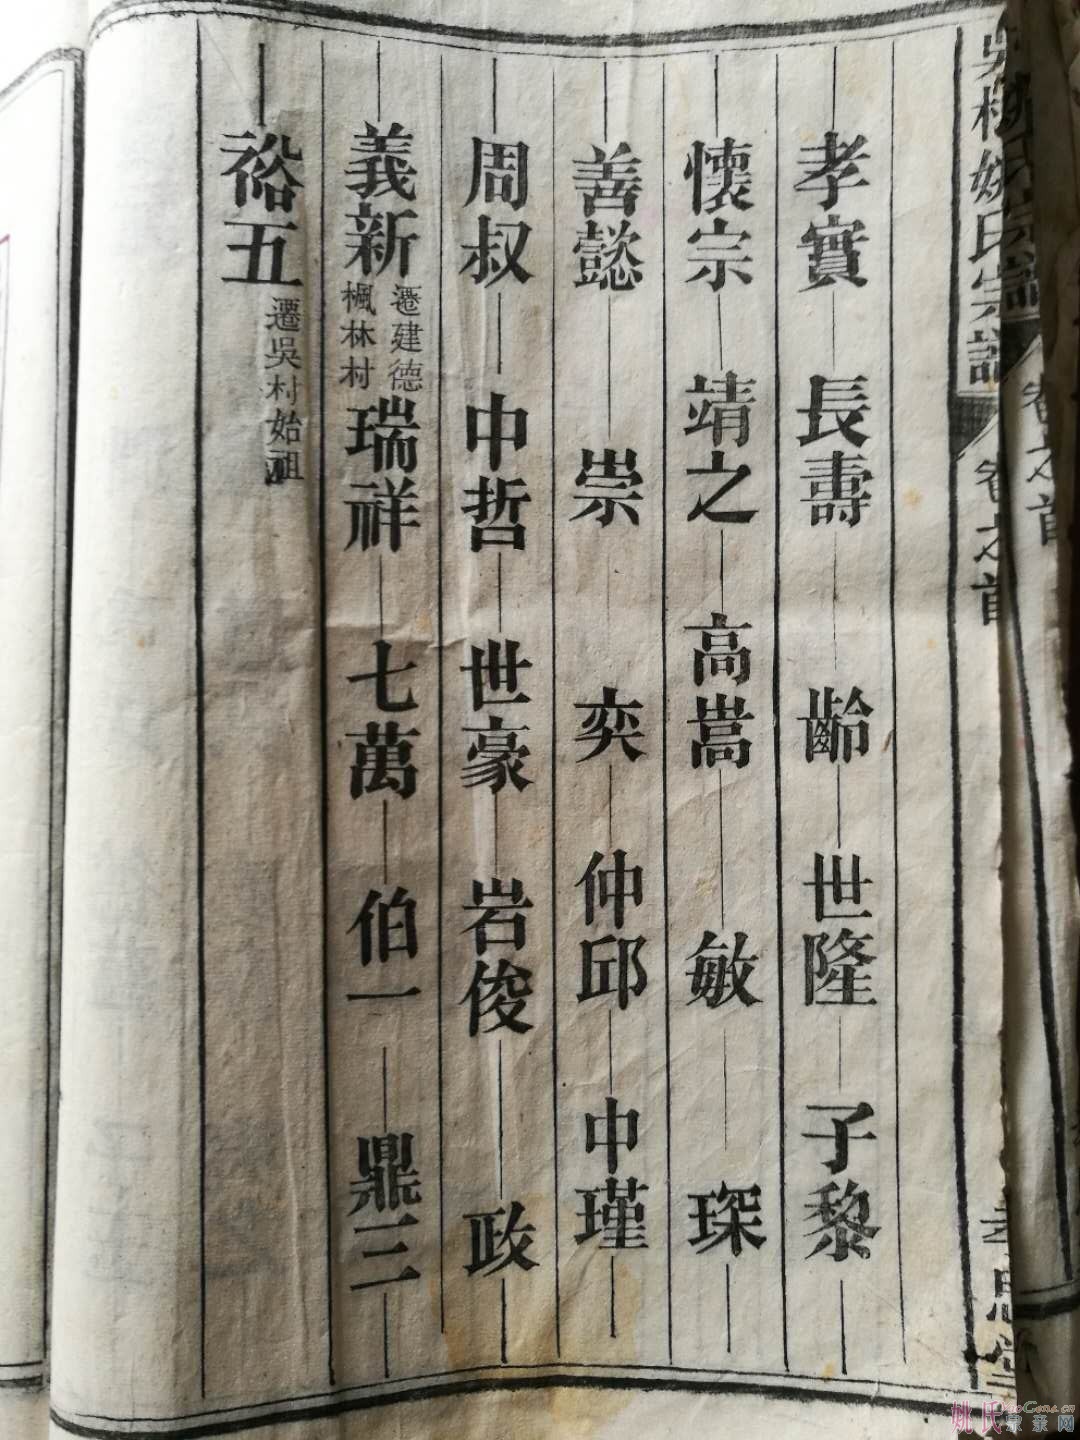 孝實 長壽 齡 世隆 子黎
懷宗 靖之 高嵩 敏 琛
善懿 崇 奕 仲邱 中瑾
周叔 中哲 世豪 岩俊 政
義新 遷建德楓林村 瑞祥 七萬 伯一 鼎三
裕五 遷吳村始祖
吳村姚氏宗譜 卷之首 孝思堂
卷之首
姚氏